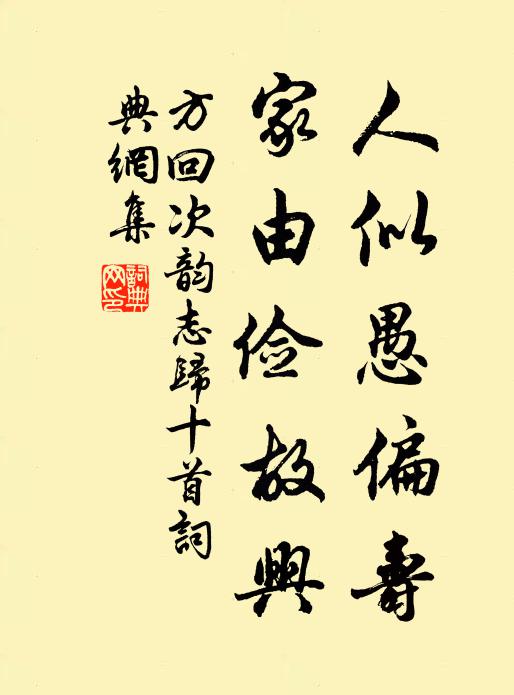 人似愚偏壽
家由俭故興
方回次韵志歸十首詞
典網集
詞典
网印